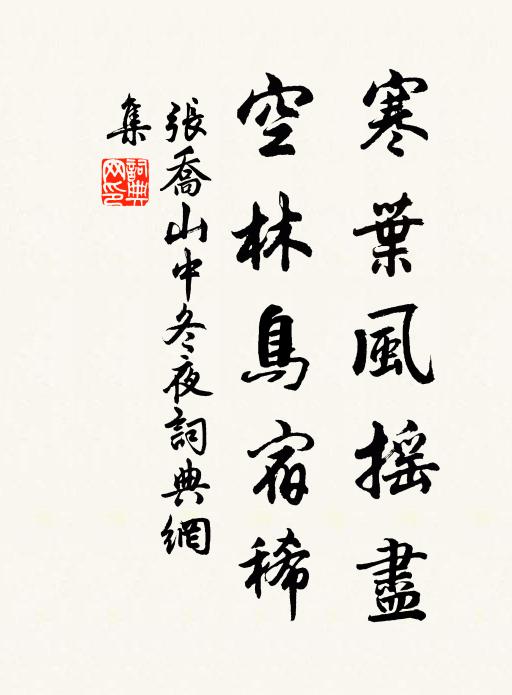 寒葉風摇盡
空林鳥宿稀
張喬山中冬夜詞典網
集
詞典网印